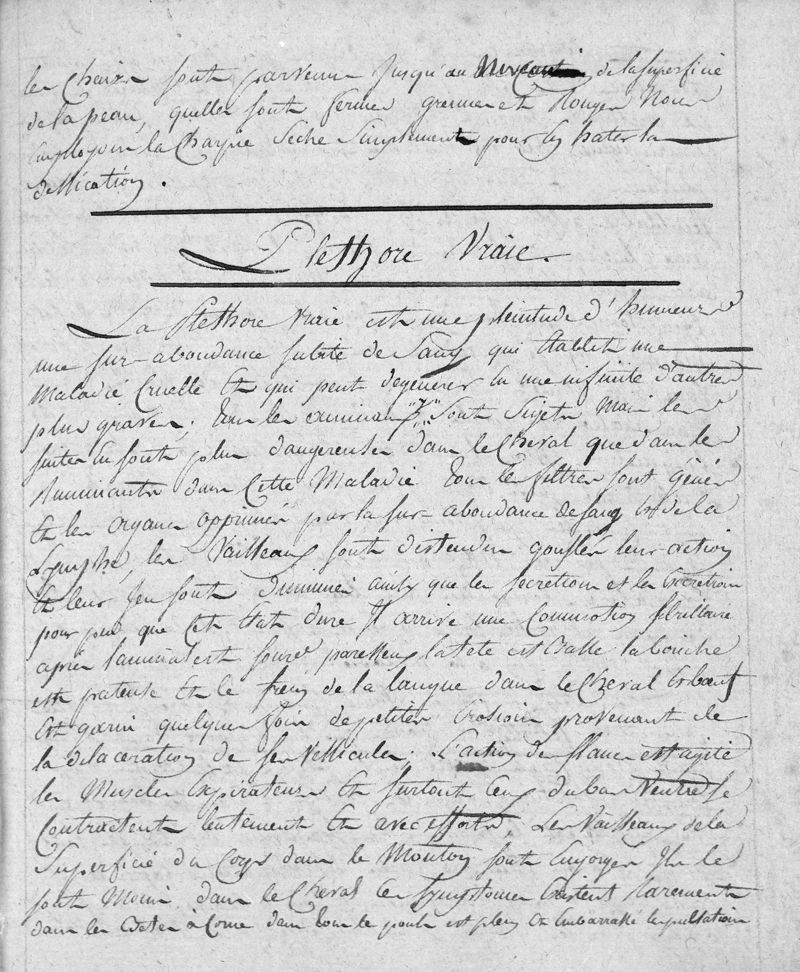 les Chairs sont parvenus Jusqu'au Niveau de la superficie
de la peau, quelles sont fermes grenues et Rouges Nous
Employons la Charpie Seche Simplement pour hater la
dessication.
Plethore Vraie
La Plethore Vraie est une pleintude d'humeurs
une sur-abondance subite de Sang qui Etablit une
Maladie Cruelle Et qui peut degenerer En une infinité d'autres
plus graves; Tous les animaux y Sont Sujets Mais les
suites En sont plus dangereuses dans le Cheval que dans les
Ruminants dans Cette Maladie Tous les filtres sont génés
Et les organes opprimés par la sur-abondance de sang Et de la
Lymphe, les Vaisseaux sont distendus gonflés leur action
Et leur Jeu sont diminués ainsy que les secretions et les Excretions
pour peu que Cet Etat dure Il arrive une Commotion
après l'animal est lourd paresseux la tete est Basse la bouche
est pateuse Et le frein de la langue dans le Cheval Et bœuf
Est garni quelques fois de petites Erosions provenant de
la dilaceration de ses Vessicules. L'action des flancs est agité
les Muscles Expirateurs Et surtout Ceux du bas Ventre se
Contractent lentement Et avec efforts, Les Vaisseaux de la
Superficie du Corps dans le Mouton sont Engorgés Ils le
sont Moins dans le Cheval Ces symptomes Existent Rarement
dans les Betes à Corne dans tous le pouls est plein Et Embarrassé les pulsations